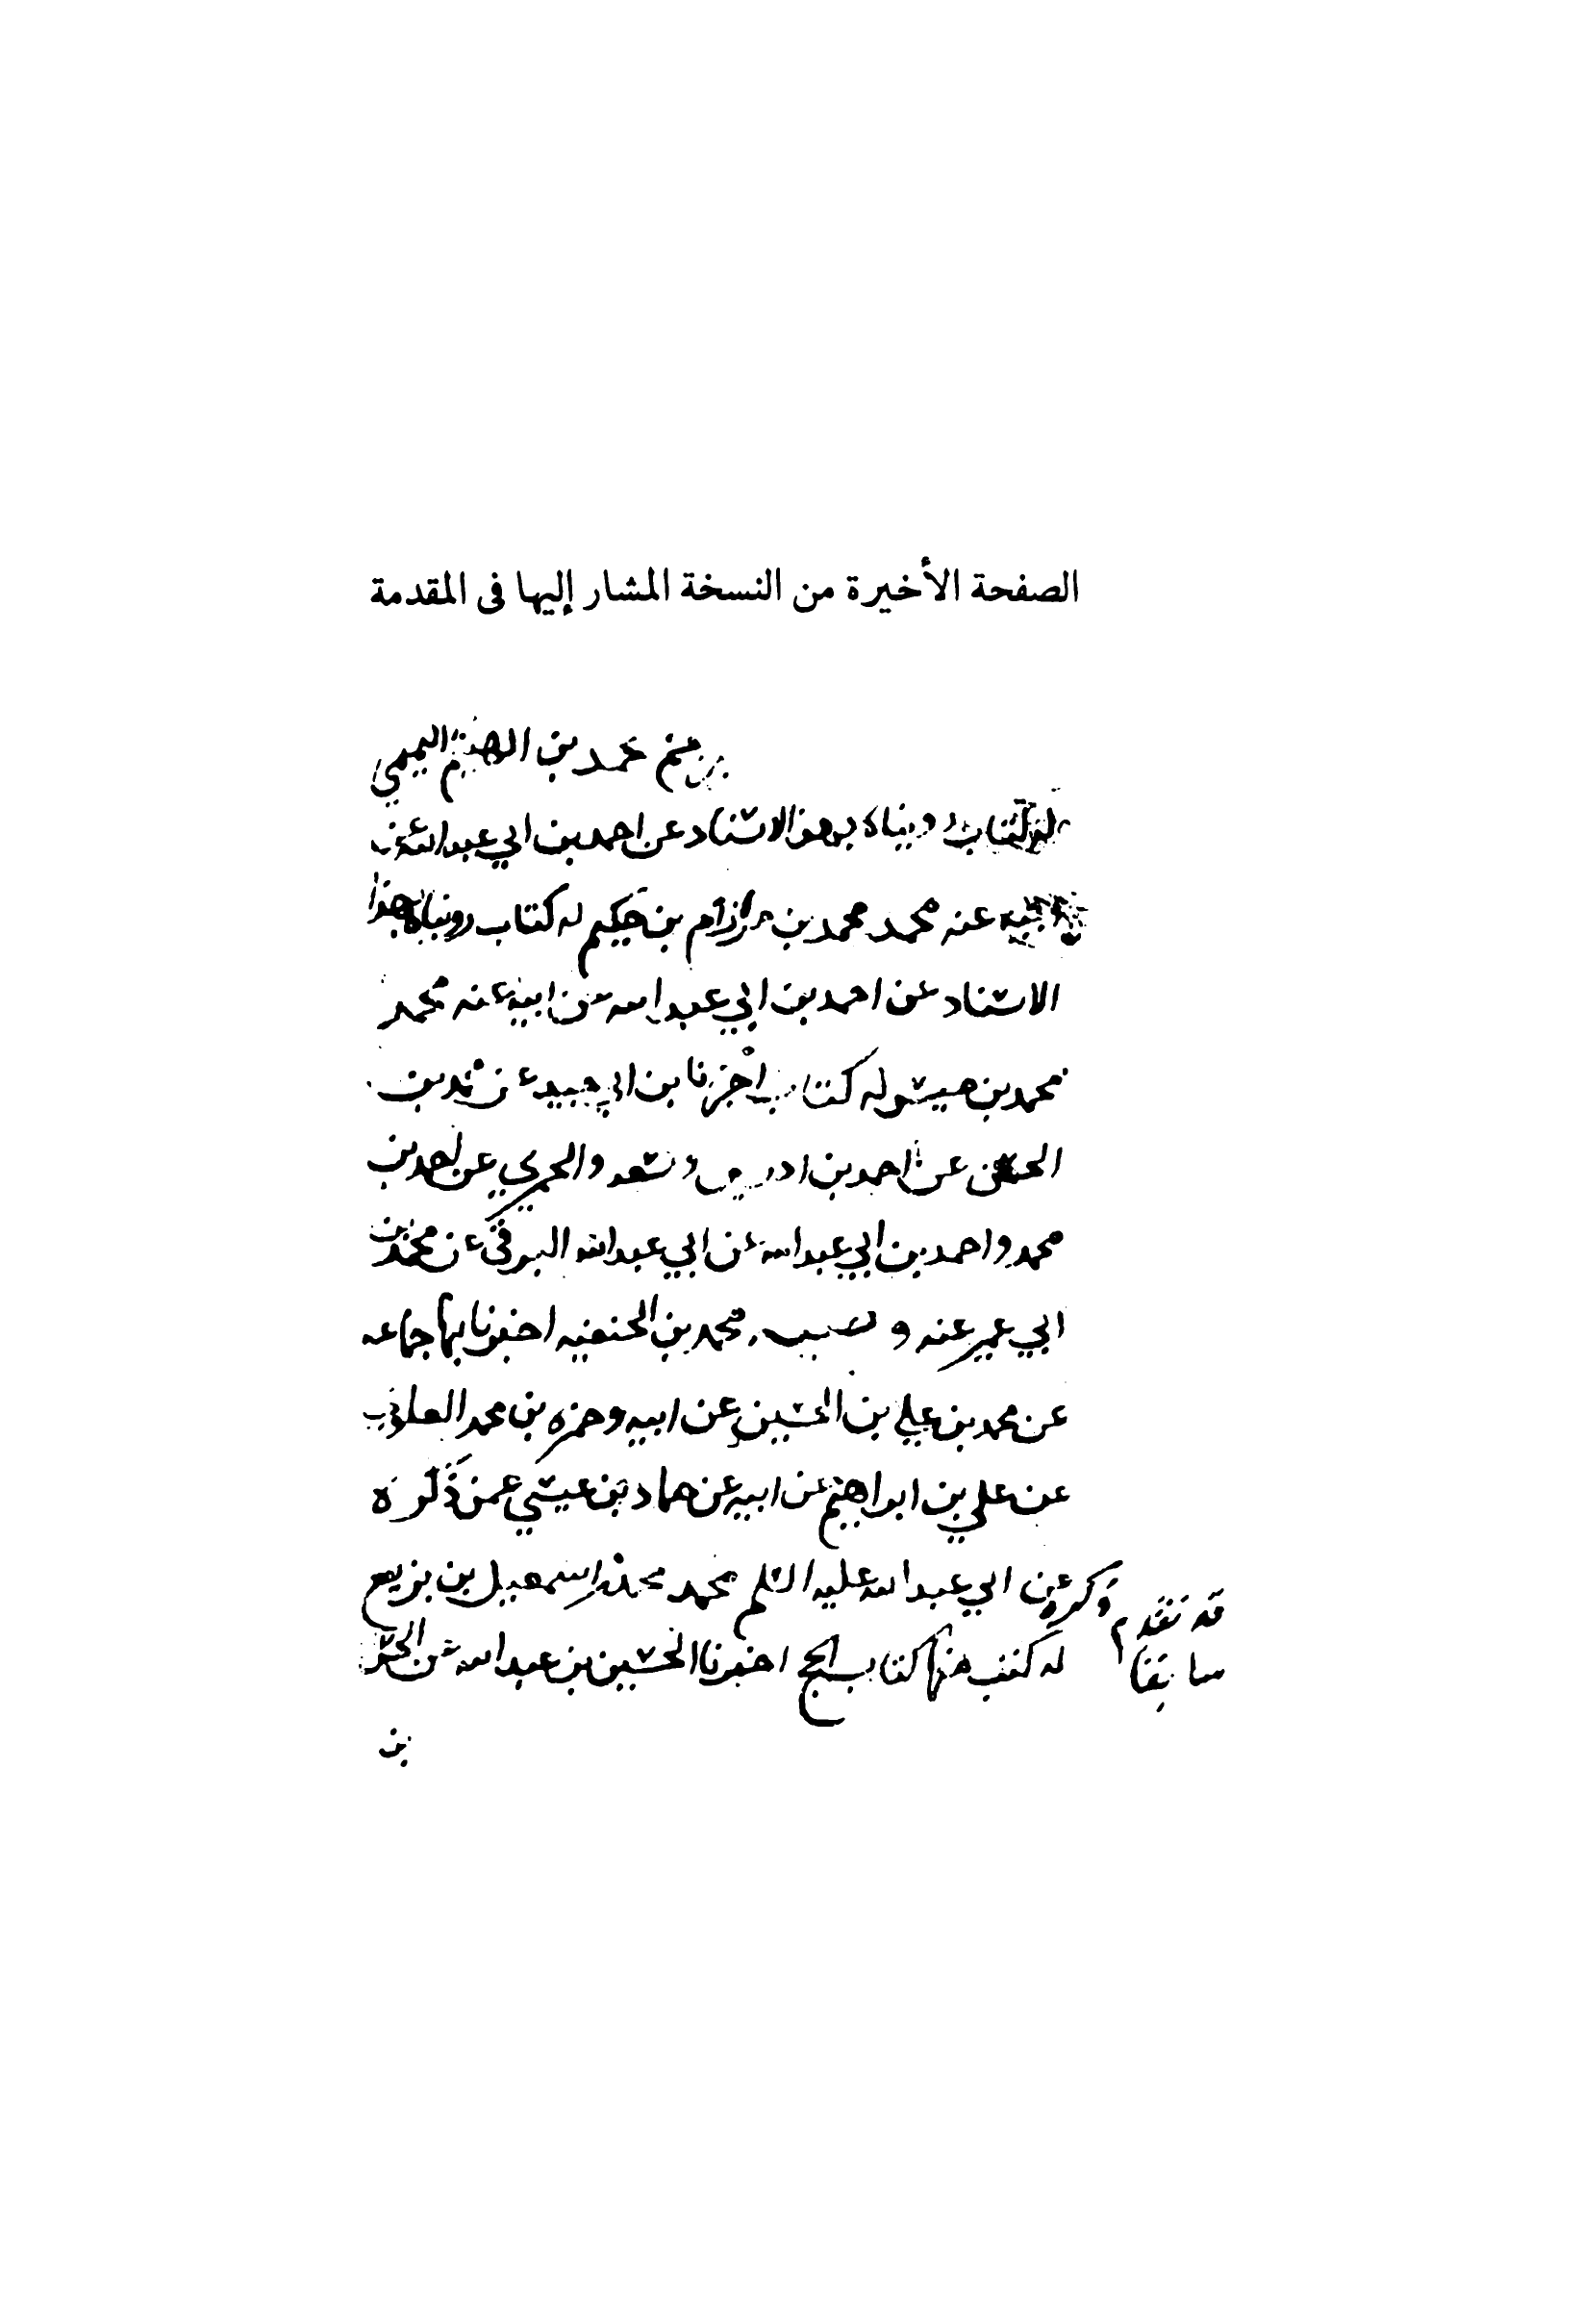 الصفحة الأخيرة من النسخة المشار إليها في المقدمة
محمد بن الهيثم التميمي
كتاب رويناه بهذا الاسناد عن احمد بن ابي عبدالله عن
ابيه عنه محمد محمد بن مرازم بن حكيم له كتاب رويناه بهذا
الاسناد عن احمد بن ابي عبد الله عن ابيه عنه محمد
محمد بن عيسى له كتاب اخبرنا بن ابي جيد عن محمد بن
الحسن عن احمد بن ادريس وسعد والحميري عن احمد بن
محمد واحمد بن ابي عبد الله عن ابي عبد الله البرقي عن محمد بن
ابي عمير عنه و محمد بن الحنفيه اخبرنا بها جماعه
عن محمد بن علي بن الحسين عن ابيه وحمزه بن محمد العلوي
عن علي بن ابراهيم عن ابيه عن حماد بن عيسي عمن ذكره
ذكره عن ابي عبد الله عليه السلم محمد محمد اسمعيل بن بزيع
له كتب منها كتاب الحج اخبرنا الحسين بن عبد الله عن الحسن
بن
قد تقدم
سابقا